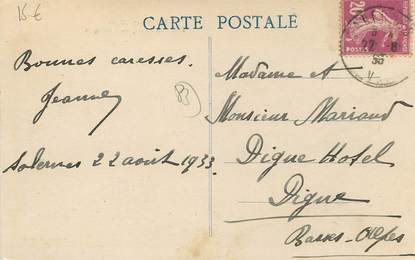 15 €
CARTE POSTALE
20
POSTES
Bonnes caresses.
Jeanne
83
Salernes 22 août 1933
Madame et
Monsieur Mariaud
Digne Hotel
Digne
Basses-Alpes